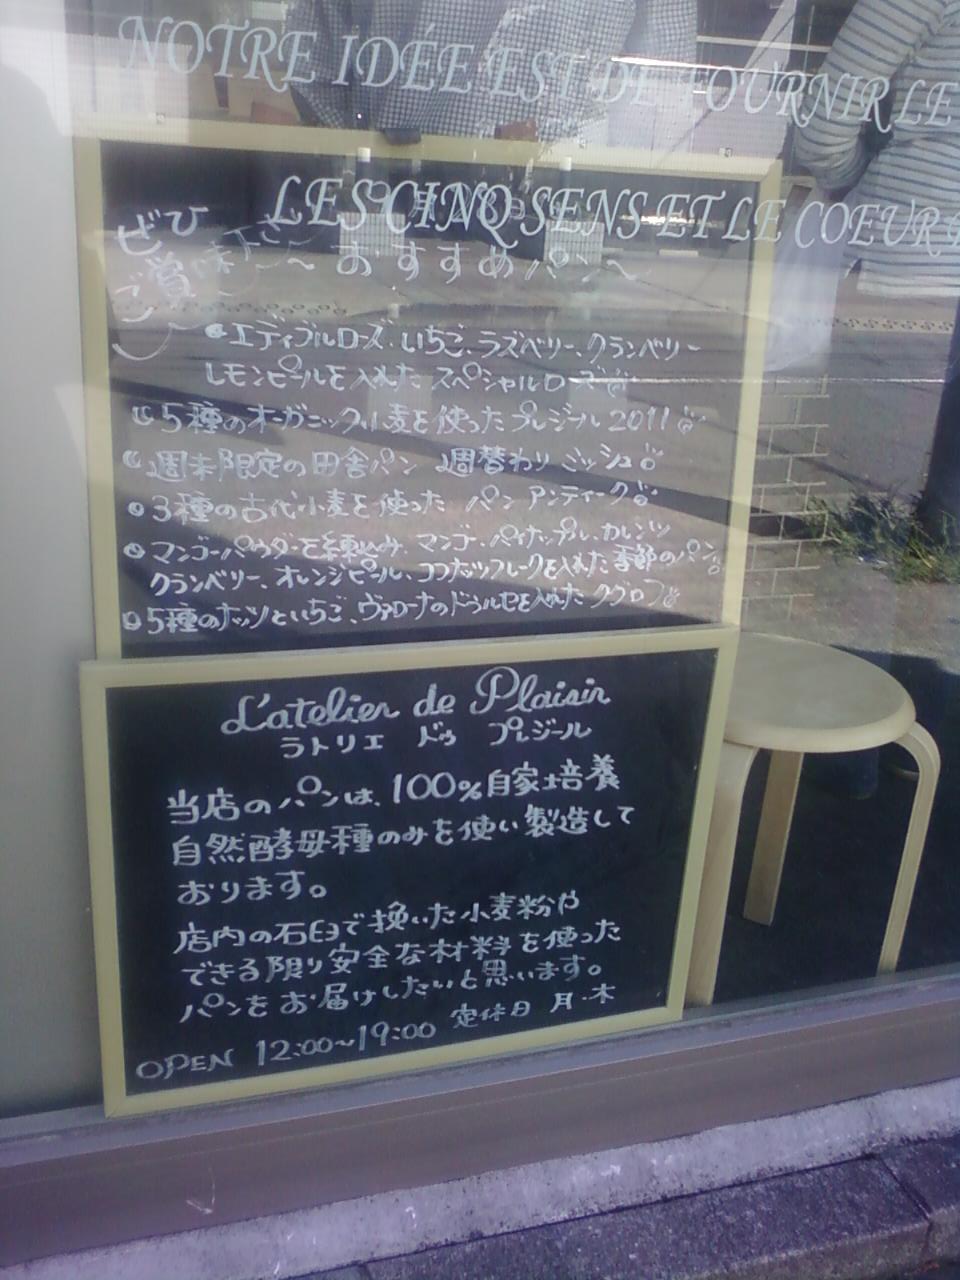 NOTRE IDÉE EST DE FOURNIR LE
LES CINQ SENS ET LE COEUR
ぜひ
ご賞味下さい
～おすすめパン～
エディブルローズ、いちご、ラズベリー、クランベリー
レモンピールを入れたスペシャルローズ
5種のオーガニック小麦を使ったプレジール2011
週末限定の田舎パン 週替わりミッシュ
3種の古代小麦を使った パンアンティーク
マンゴーパウダーを練込み、マンゴー、パイナップル、カレンツ
クランベリー、オレンジピール、ココナッツフレークを入れた季節のパン
5種のナッツといちご、ヴァローナのドゥルセを入れたクグロフ
L'atelier de Plaisir
ラトリエ ドゥ プレジール
当店のパンは、100%自家培養
自然酵母種のみを使い製造して
おります。
店内の石臼で挽いた小麦粉や
できる限り安全な材料を使った
パンをお届けしたいと思います。
OPEN 12:00～19:00 定休日 月・木